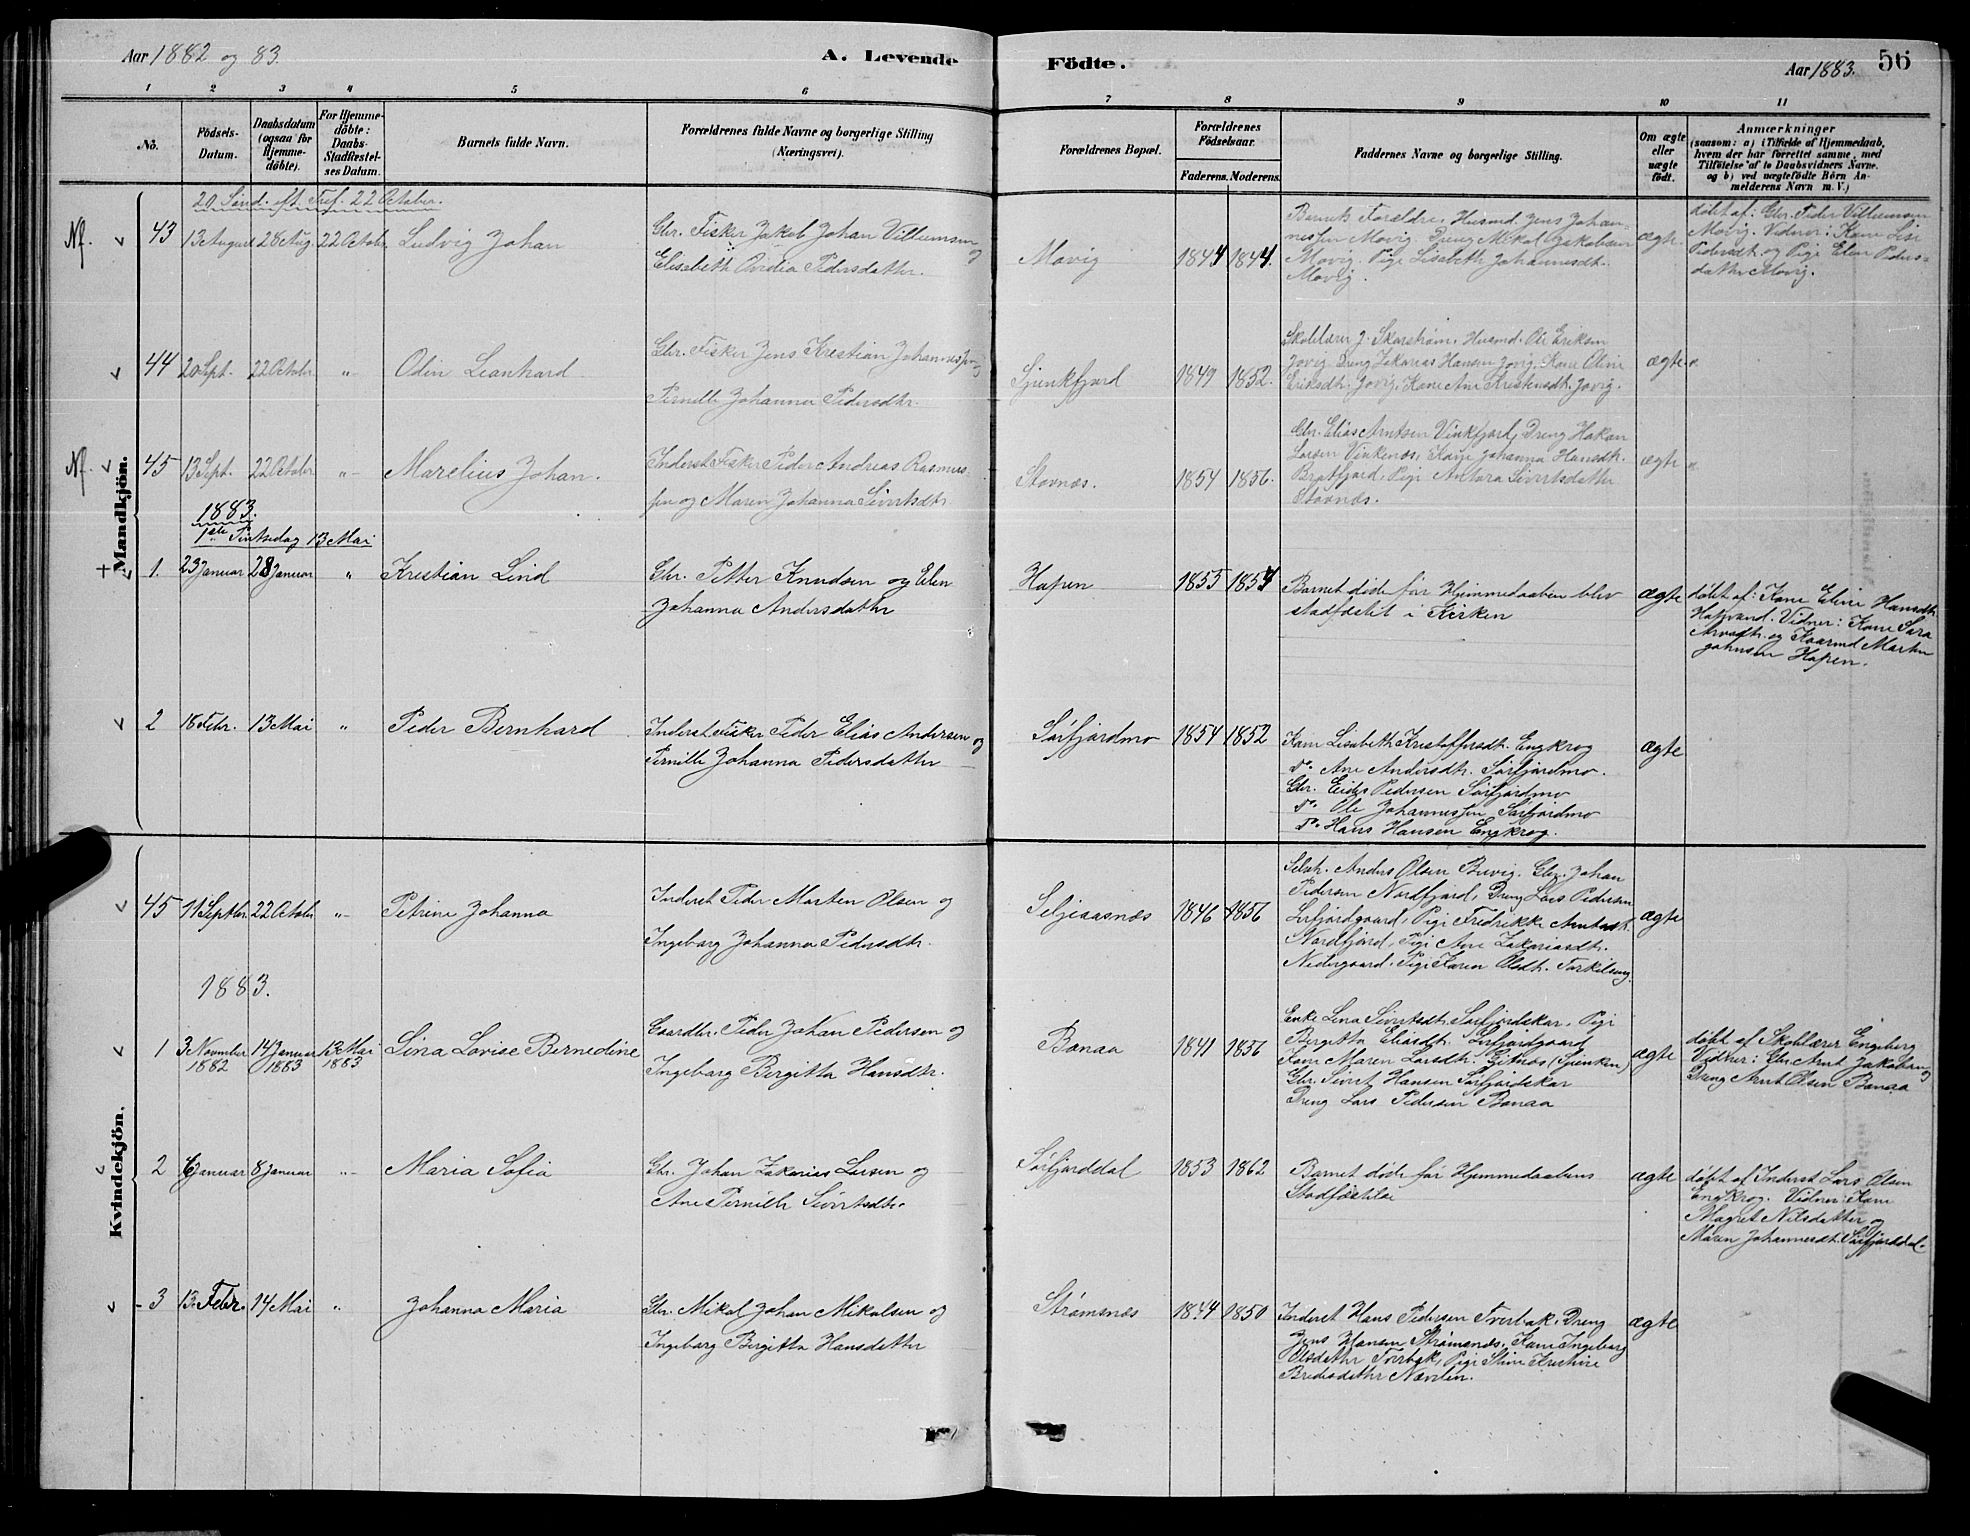 Aar 1882 og 83.
A. Levende Födte.
Aar 1883.
56
1 2 3 4 5 6 7 8 9 10 11
No.
Födsels-Datum.
Daabsdatum (ogsaa for Hjemmedöbte).
For Hjemmedöbte: Daabs-Stadfæstelses Datum.
Barnets fulde Navn.
Forældrenes fulde Navne og borgerlige Stilling (Næringsvei).
Forældrenes Bopæl.
Forældrenes Födselsaar.
Faderens. Moderens.
Faddernes Navne og borgerlige Stilling.
Om ægte eller uægte födt.
Anmærkninger
(saasom: a) i Tilfælde af Hjemmedaab, hvem der har forrettet samme, med Tilföielse af to Daabsvidners Navne, og b) ved uægtefödte Börn Anmelderens Navn m. V.)
Mandkjön.
20 Sönd. eft. Tref. 22 October.
Nf. 43 13 August 28 Aug. 22 Octobr Ludvig Johan
Gbr. Fisker Jakob Johan Villumsen og
Elisabeth Ovidia Pedersdatter.
Movig 1844 1844.
Barnets Forældre, Husmd. Jens Johan-
nessen Movig. Dreng Mikal Jakobsen
Movig. Pige Lisabeth Johannesdt.
Movig.
ægte
döbt af: Gbr. Peder Villumsen
Movig. Vidner: Kone Lise
Pedersdt. og Pige Elen Peders-
datter Movig.
44 20 Sept. 22 Octobr " Odin Leonhard
Gbr. Fisker Jens Kristian Johannessen og
Pernille Johanna Pedersdtr.
Sjunkfjord 1849 1852.
Skolelærer J. Skarstrøm, Husmd. Ole Eriksen
Jovig, Dreng Zakarias Hansen Jovig, Kone Oline
Eriksdt. Jovig, Kone Ane Kristensdt. Jovig.
ægte
Nf. 45 13 Sept. 22 Octobr " Marelius Johan.
Inderst Fisker Peder Andreas Rasmus-
sen og Maren Johanna Sivertsdtr
Stavnæs. 1854 1856.
Gbr. Elias Arntsen Vinkfjord, Dreng Hakon
Larsen Vinkenæs, Kone Johanna Hansdt.
Bratfjord, Pige Antora Sivertsdatter
Stavnæs.
ægte "
1883.
1ste Pintsedag 13 Mai
+ 1. 23 Januar 28 Januar " Kristian Lind
Gbr. Petter Knudsen og Elen
Johanna Andersdatter
Hopen 1855 1854
Barnet døde før Hjemmedaaben blev
stadfæstet i Kirken
ægte
döbt af: Kone Eline Hansdtr.
Hatvand. Vidner: Kone Sara
Arnsdt. og Kaarmd Marten
Johnsen Hopen.
2 18 Febr. 13 Mai " Peder Bernhard
Inderst Fisker Peder Elias Andersen og
Pernille Johanna Pedersdatter
Sørfjordmo 1854 1852
Kone Lisabeth Kristoffersdt. Engkrog
Do. Ane Andersdt. Sørfjordmo.
Gbr. Elias Pedersen Sørfjordmo
Do. Ole Johannessen Sørfjordmo
Do. Hans Hansen Engkrog.
ægte
Kvindekjön.
45 11 Septbr 22 Octobr " Petrine Johanna
Inderst Peder Morten Olsen og
Ingeborg Johanna Pedersdtr.
Seljeaasnæs 1846 1856
Selvst. Anders Olsen Buvig. Gbr. Johan
Pedersen Nordfjord, Dreng Lars Pedersen
Lerfjordgaard, Pige Fredrikke Arntsdt.
Nordfjord, Pige Ane Zakariasdt.
Nedergaard. Pige Karen Olsdt. Torkilseng.
ægte
1883.
1 3 November 1882 14 Januar 1883 13 Mai 1883 Lina Lovise Bernedine
Gaardbr. Peder Johan Pedersen og
Ingeborg Bergitta Hansdtr.
Bonaa 1841 1856
Enke Lina Sivertsdt. Sørfjordskar, Pige
Bergitta Eliasdt. Lerfjordgaard
Kone Maren Larsdt. Gitnæs (Sjunken)
Gbr. Sivert Hansen Sørfjordskar
Dreng Lars Pedersen Bonaa
ægte
döbt af Skolelærer Engeberg
Vidner: Gbr. Arnt Jakobsen og
Dreng Arnt Olsen Bonaa
2 6 Januar 8 Januar " Maria Sofia
Gbr. Johan Zakarias Larsen og
Ane Pernille Sivertsdtr.
Sørfjorddal 1853 1862
Barnet døde før Hjemmedaabens
Stadfæstelse
ægte
döbt af Inderst Lars Olsen
Engkrog. Vidner: Kone
Magret Nilsdatter og
Maren Johannesdt. Sørfjorddal.
3 13 Febr. 14 Mai " Johanna Maria
Gbr. Mikal Johan Mikalsen og
Ingeborg Bergitta Hansdatter
Strømsnæs 1844 1850
Inderst Hans Pedersen Tverbak, Dreng
Jens Hansen Strømsnæs, Kone Ingeborg
Olsdatter Tverbak, Pige Stine Kristine
Bredesdatter Nævlen.
ægte